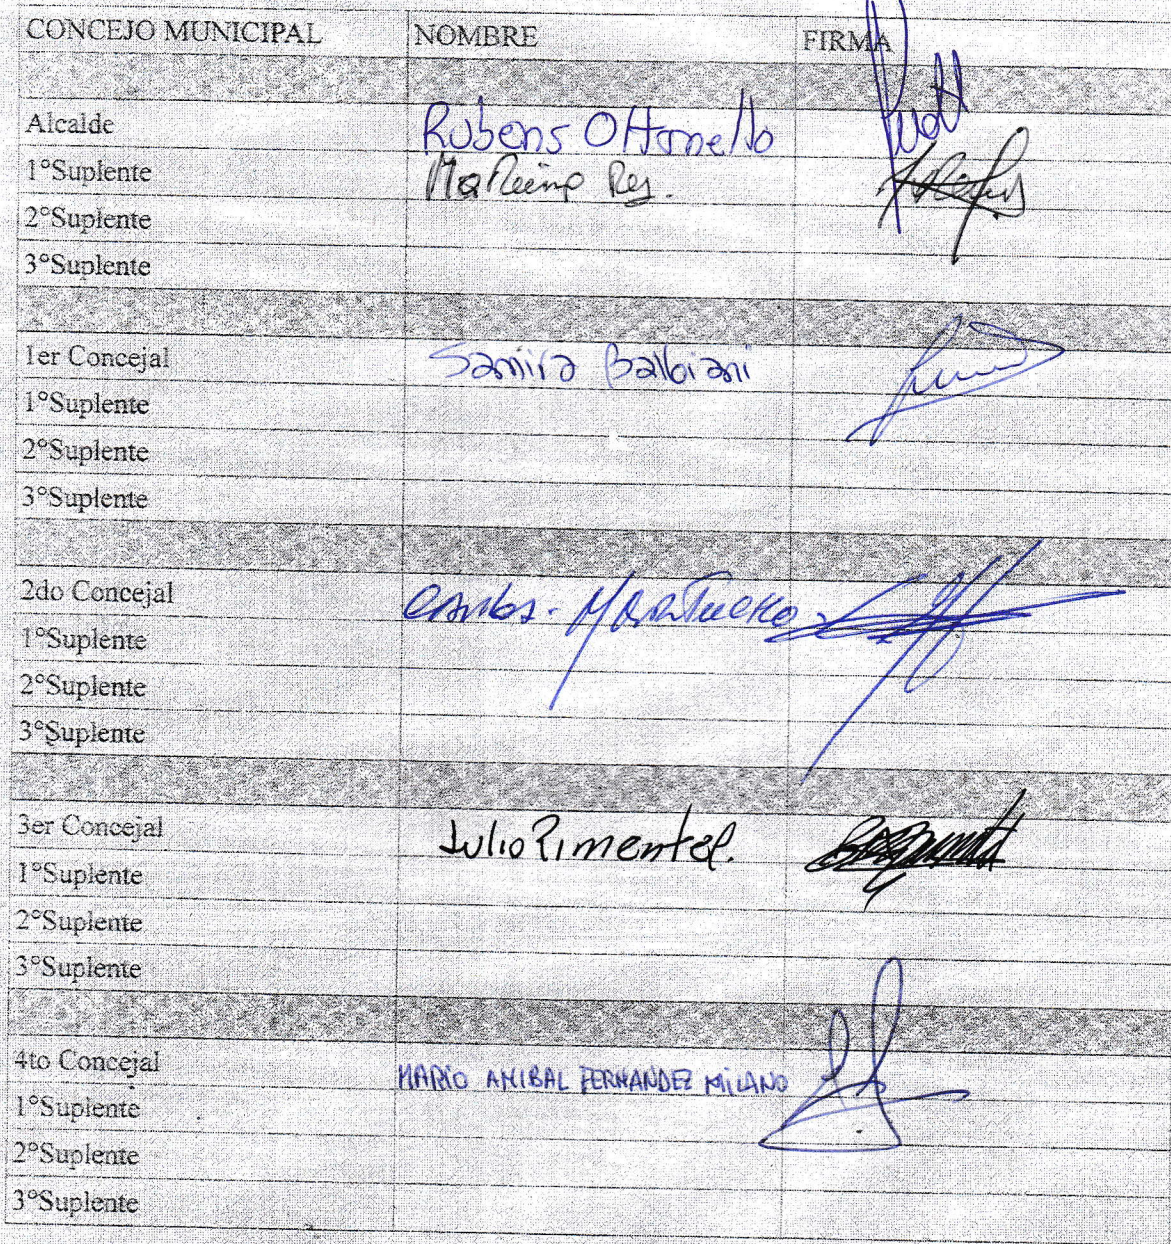 CONCEJO MUNICIPAL NOMBRE FIRMA
Alcalde Rubens Ottonello
1°Suplente Ma Rey.
2°Suplente
3°Suplente
1er Concejal Samira Balbiani
1°Suplente
2°Suplente
3°Suplente
2do Concejal Carlos -
1°Suplente
2°Suplente
3°Suplente
3er Concejal Julio Pimentel.
1°Suplente
2°Suplente
3°Suplente
4to Concejal MARIO ANIBAL FERNANDEZ MILANO
1°Suplente
2°Suplente
3°Suplente